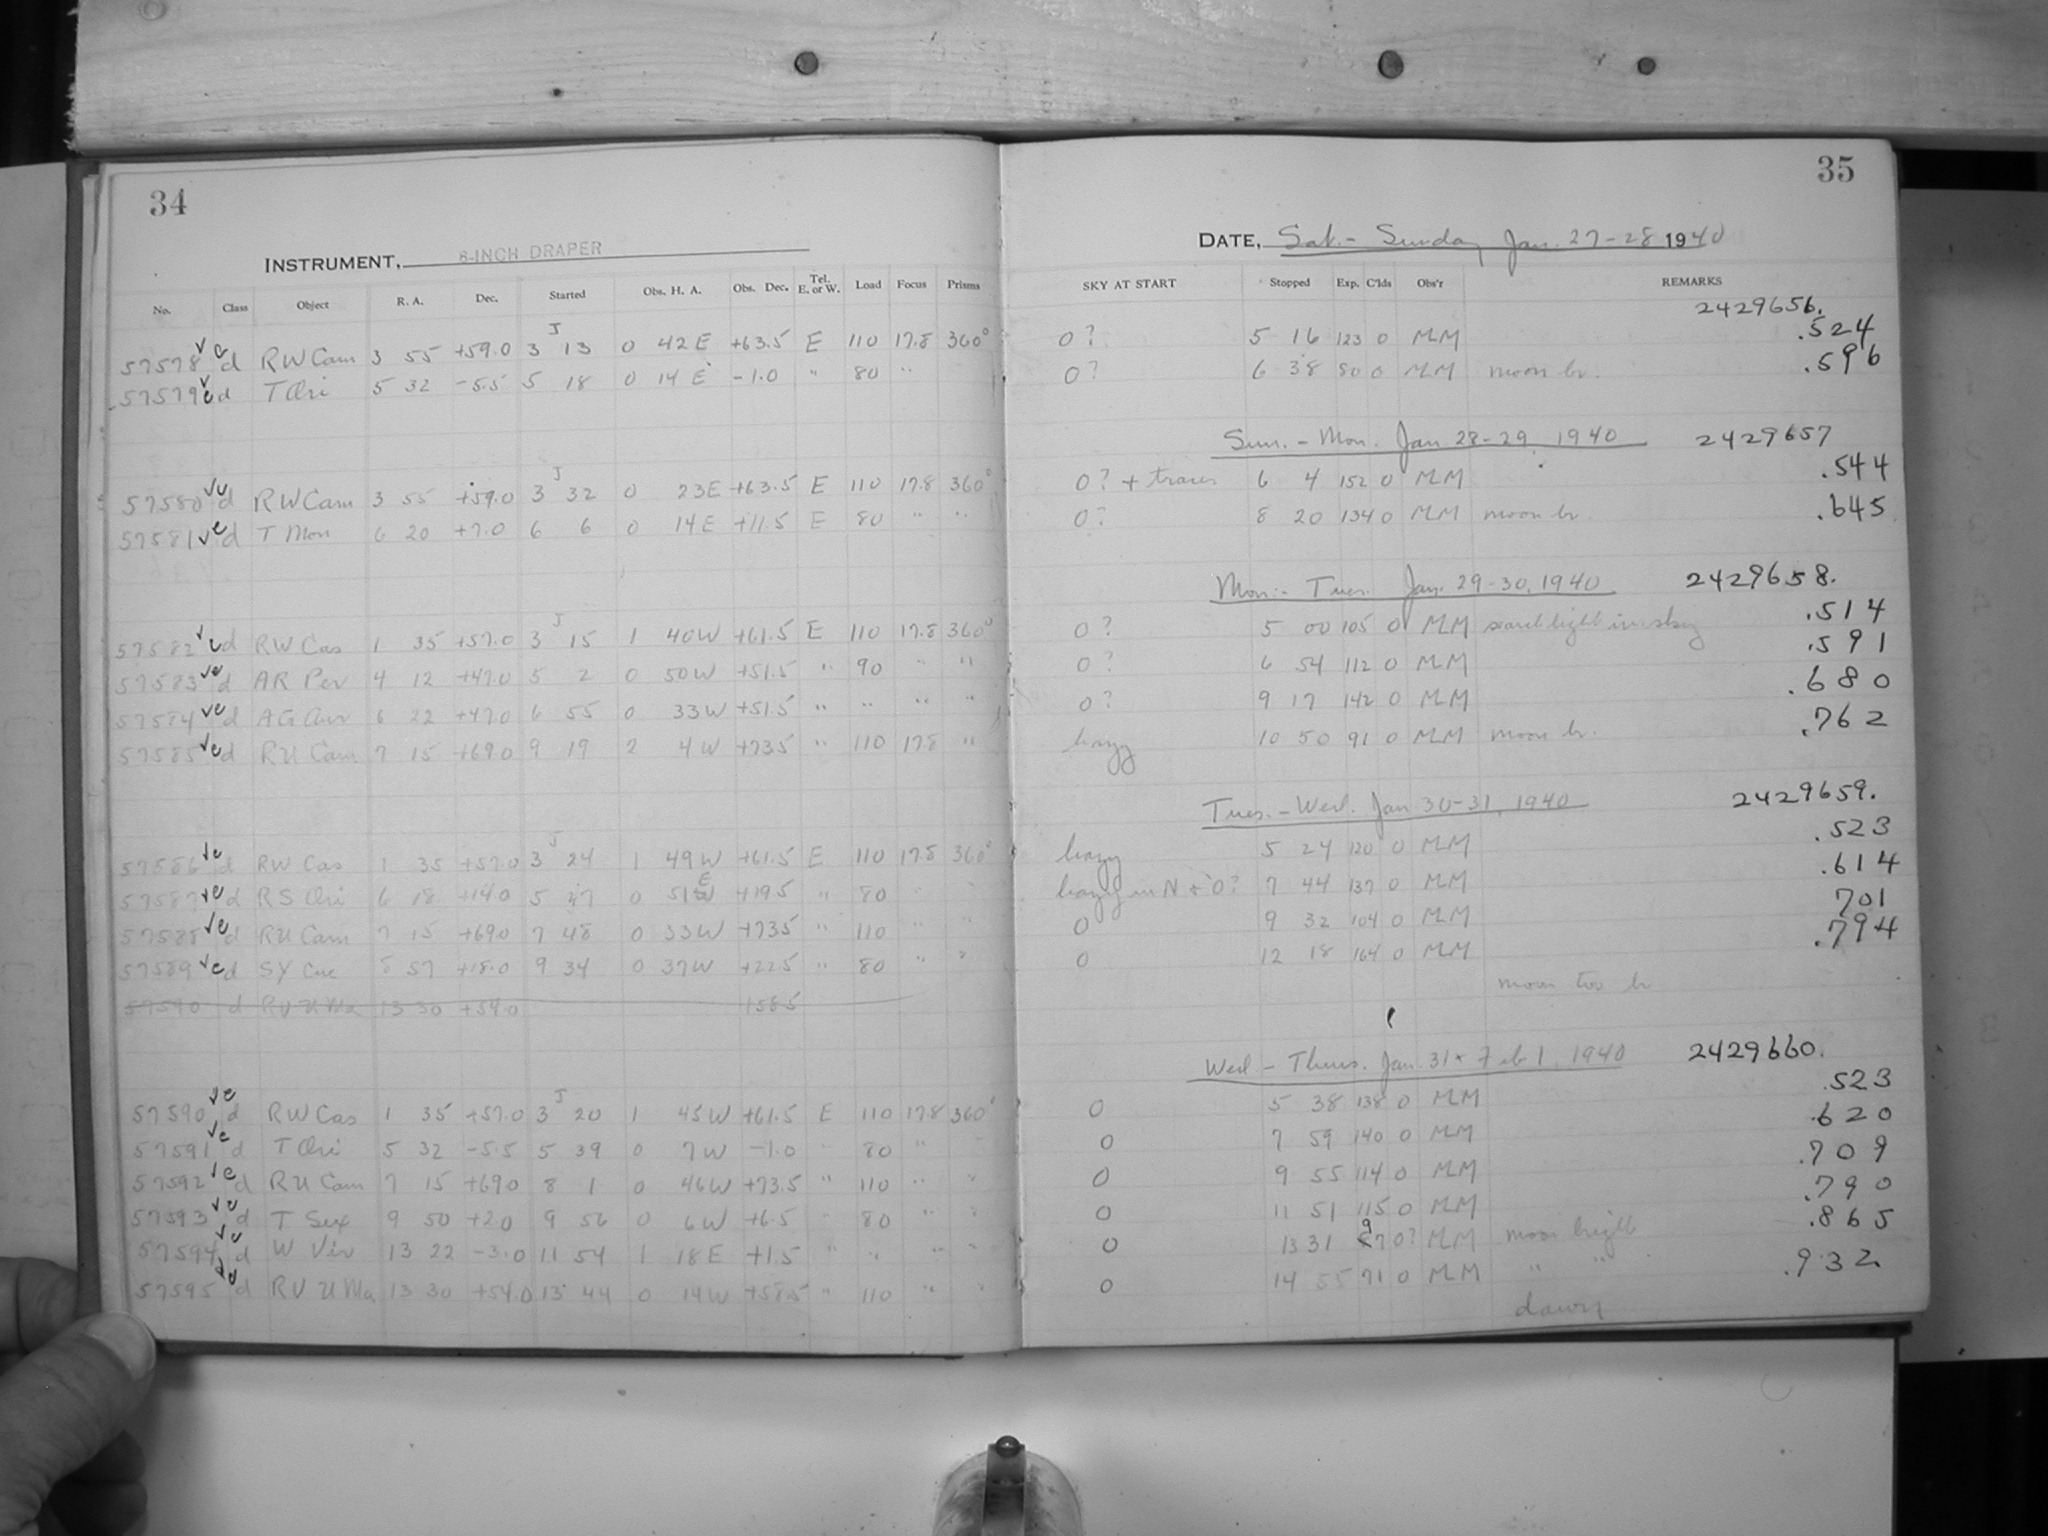 34
INSTRUMENT, 8-INCH DRAPER
No. Class Object R. A. Dec. Started Obs. H. A. Obs. Dec. Tel. E. or W. Load Focus Prisms
57578 d RW Cam 3 55 +59.0 3 13 0 42 E +63.5 E 110 17.8 360°
57579 d T Ori 5 32 -5.5 5 18 0 14 E -1.0 " 80 "
57580 d RW Cam 3 55 +59.0 3 32 0 23E +63.5 E 110 17.8 360°
57581 d T Mon 6 20 +7.0 6 6 0 14E +11.5 E 80 " "
57582 d RW Cas 1 35 +57.0 3 15 1 40W +61.5 E 110 17.8 360°
57583 d AR Per 4 12 +47.0 5 2 0 50W +51.5 " 90 " "
57584 d AG Aur 6 22 +47.0 6 55 0 33W +51.5 " " " "
57585 d RU Cam 7 15 +69.0 9 19 2 4W +73.5 " 110 17.8 "
57586 d RW Cas 1 35 +57.0 3 24 1 49W +61.5 E 110 17.8 360°
57587 d RS Ori 6 18 +14.0 5 27 0 51 E +19.5 " 80 "
57588 d RU Cam 7 15 +69.0 7 48 0 33W +73.5 " 110 " "
57589 d SY Cnc 8 57 +18.0 9 34 0 37W +22.5 " 80 " "
57590 d RV U Ma 13 30 +54.0 +58.5
57590 d RW Cas 1 35 +57.0 3 20 1 45W +61.5 E 110 17.8 360°
57591 d T Ori 5 32 -5.5 5 39 0 7W -1.0 " 80 " "
57592 d RU Cam 7 15 +69.0 8 1 0 46W +73.5 " 110 " "
57593 d T Sex 9 50 +2.0 9 56 0 6W +6.5 " 80 " "
57594 d W Vir 13 22 -3.0 11 54 1 18E +1.5 " " " "
57595 d RV U Ma 13 30 +54.0 13 44 0 14W +58.5 " 110 " "
35
DATE, Sat.- Sunday Jan. 27-28 1940
SKY AT START Stopped Exp. C'lds Obs'r REMARKS
2429656.
0? 5 16 123 0 MM .524
0? 6 38 80 0 MM moon br. .596
Sun. - Mon. Jan 28-29, 1940 2429657
0? + traces 6 4 152 0 MM .544
0? 8 20 134 0 MM moon br. .645
Mon. - Tues. Jan. 29-30, 1940 2429658.
0? 5 00 105 0 MM searchlight in sky .514
0? 6 54 112 0 MM .591
0? 9 17 142 0 MM .680
hazy 10 50 91 0 MM moon br. .762
Tues. - Wed. Jan 30-31, 1940 2429659.
hazy 5 24 120 0 MM .523
hazy in N + 0? 7 44 137 0 MM .614
0 9 32 104 0 MM 701
0 12 18 164 0 MM .794
moon too br
Wed - Thurs. Jan. 31 + Feb 1, 1940 2429660.
0 5 38 138 0 MM .523
0 7 59 140 0 MM .620
0 9 55 114 0 MM .709
0 11 51 115 0 MM .790
0 13 31 97 0? MM moon bright .865
0 14 55 71 0 MM " " .932
dawn